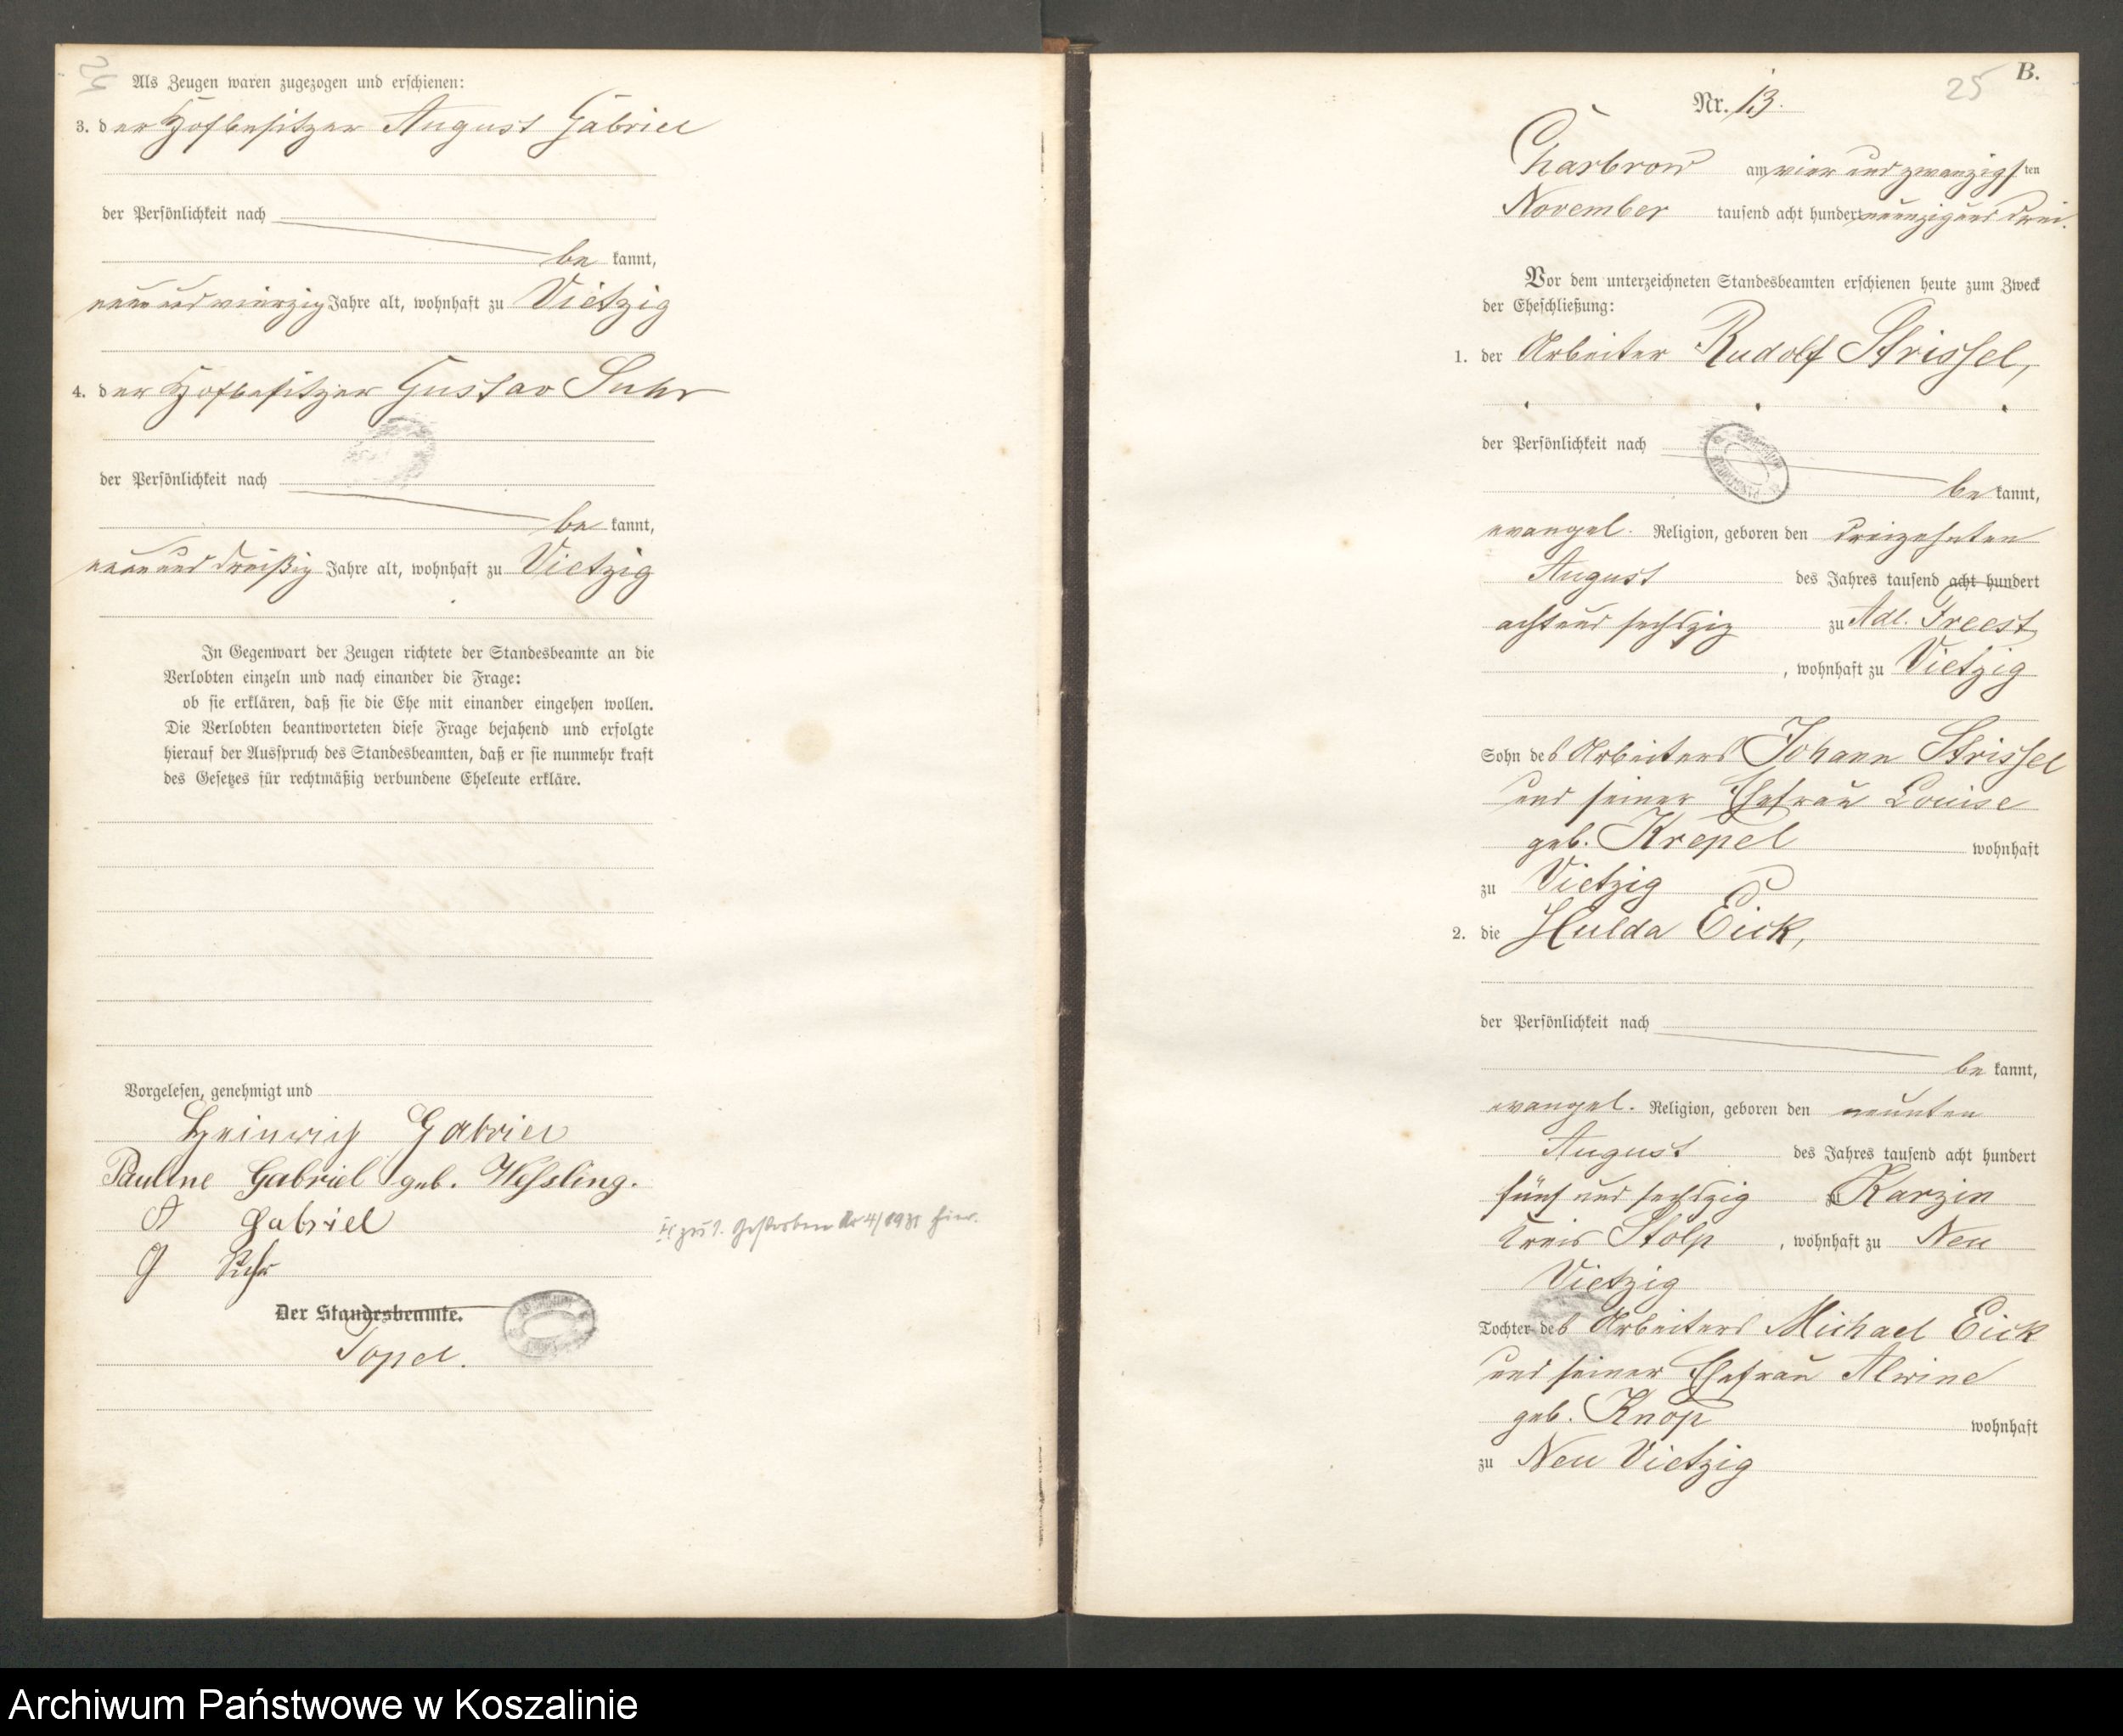 Als Zeugen waren zugezogen und erschienen:
3. der Hofbesitzer August Gabriel
der Persönlichkeit nach
be kannt,
neun und vierzig Jahre alt, wohnhaft zu Vietzig
4. der Hofbesitzer Gustav Suhr
der Persönlichkeit nach
be kannt,
neun und dreißig Jahre alt, wohnhaft zu Vietzig
In Gegenwart der Zeugen richtete der Standesbeamte an die
Verlobten einzeln und nach einander die Frage:
ob sie erklären, daß sie die Ehe mit einander eingehen wollen.
Die Verlobten beantworteten diese Frage bejahend und erfolgte
hierauf der Ausspruch des Standesbeamten, daß er sie nunmehr kraft
des Gesetzes für rechtmäßig verbundene Eheleute erkläre.
Vorgelesen, genehmigt und
Heinrich Gabriel
Pauline Gabriel geb. Weßling.
A Gabriel
G Suhr
zu 1. Gestorben Nr 4/1931 hier.
Der Standesbeamte.
Topel.
B.
25
Nr. 13.
Charbrow am vier und zwanzigsten
November tausend acht hundert neunzig und drei.
Vor dem unterzeichneten Standesbeamten erschienen heute zum Zweck
der Eheschließung:
1. der Arbeiter Rudolf Strissel,
der Persönlichkeit nach
be kannt,
evangel. Religion, geboren den dreizehnten
August des Jahres tausend acht hundert
acht und sechszig zu Adl. Freest
, wohnhaft zu Vietzig
Sohn des Arbeiters Johann Strissel
und seiner Ehefrau Louise
geb. Krepel wohnhaft
zu Vietzig
2. die Hulda Eick,
der Persönlichkeit nach
be kannt,
evangel. Religion, geboren den neunten
August des Jahres tausend acht hundert
fünf und sechszig zu Karzin
Kreis Stolp , wohnhaft zu Neu
Vietzig
Tochter des Arbeiters Michael Eick
und seiner Ehefrau Alwine
geb. Knop wohnhaft
zu Neu Vietzig
Archiwum Państwowe w Koszalinie